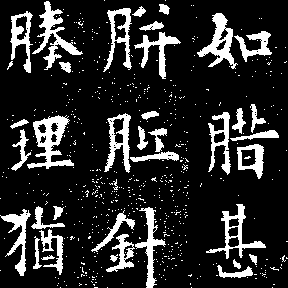 如腊甚
胼胝針
腠理猶